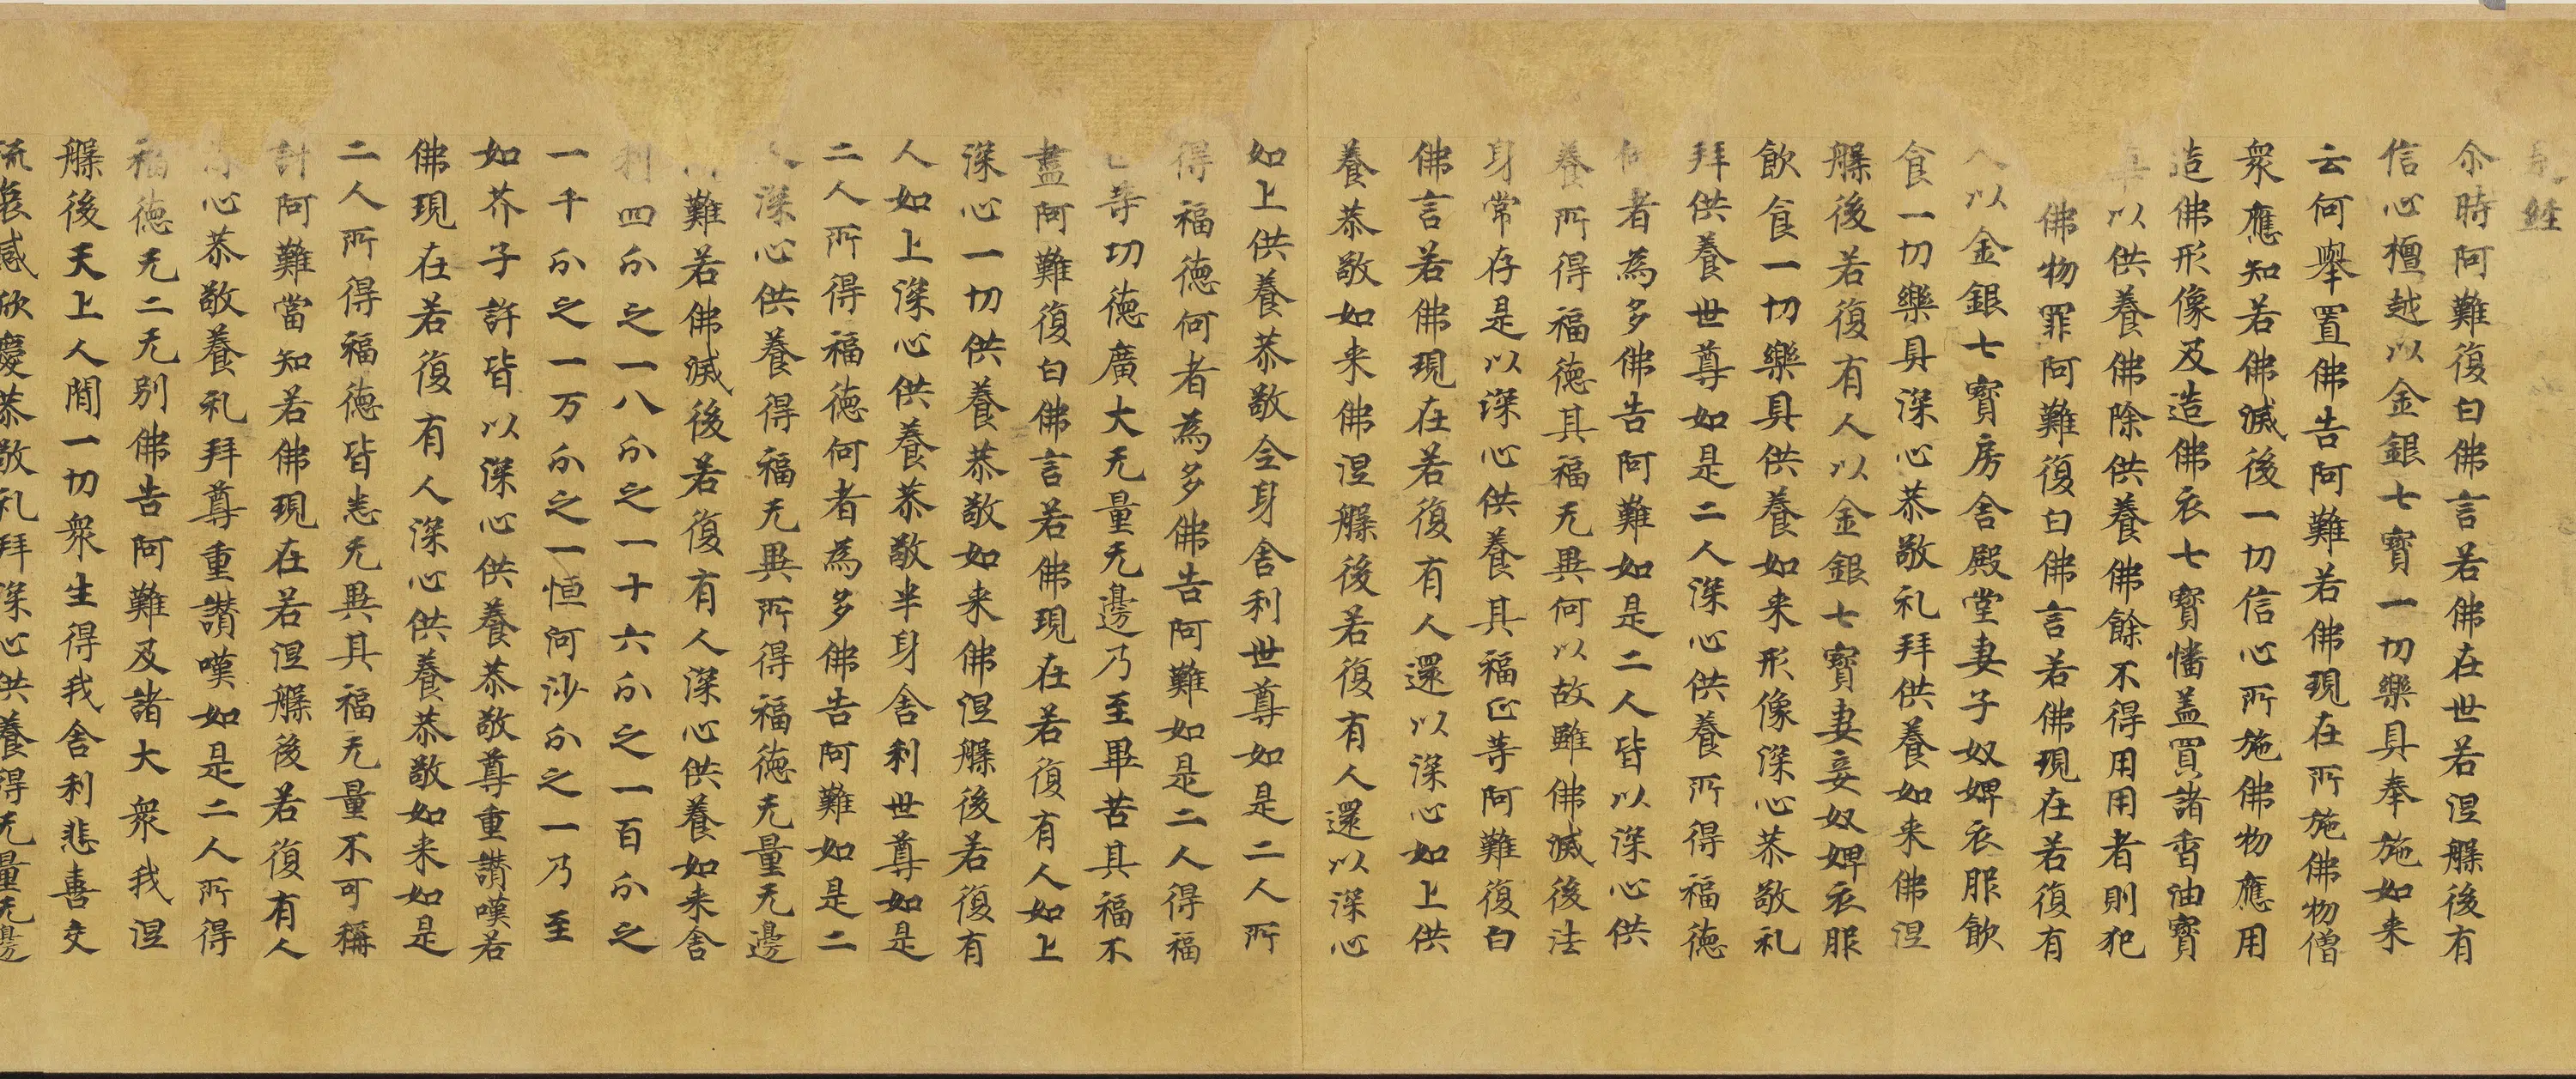 経
尒時阿難復白佛言若佛在世若涅槃後有
信心檀越以金銀七寶一切樂具奉施如来
云何舉置佛告阿難若佛現在所施佛物僧
衆應知若佛滅後一切信心所施佛物應用
造佛形像及造佛衣七寶幡盖買諸香油寶
以供養佛除供養佛餘不得用用者則犯
佛物罪阿難復白佛言若佛現在若復有
人以金銀七寶房舍殿堂妻子奴婢衣服飲
食一切樂具深心恭敬礼拜供養如来佛涅
槃後若復有人以金銀七寶妻妾奴婢衣服
飲食一切樂具供養如来形像深心恭敬礼
拜供養世尊如是二人深心供養所得福德
何者為多佛告阿難如是二人皆以深心供
養所得福德其福无異何以故雖佛滅後法
身常存是以深心供養其福正等阿難復白
佛言若佛現在若復有人還以深心如上供
養恭敬如来佛涅槃後若復有人還以深心
如上供養恭敬全身舍利世尊如是二人所
得福德何者為多佛告阿難如是二人得福
正等功德廣大无量无邊乃至畢苦其福不
盡阿難復白佛言若佛現在若復有人如上
深心一切供養恭敬如来佛涅槃後若復有
人如上深心供養恭敬半身舍利世尊如是
二人所得福德何者為多佛告阿難如是二
人深心供養得福无異所得福德无量无邊
難若佛滅後若復有人深心供養如来舍
利四分之一八分之一十六分之一百分之
一千分之一万分之一恒河沙分之一乃至
如芥子許皆以深心供養恭敬尊重讃嘆若
佛現在若復有人深心供養恭敬如来如是
二人所得福德皆悉无異其福无量不可稱
計阿難當知若佛現在若涅槃後若復有人
深心恭敬供養礼拜尊重讃嘆如是二人所得
福德无二无别佛告阿難及諸大衆我涅
槃後天上人間一切衆生得我舍利悲喜交
流哀感欣慶恭敬礼拜深心供養得无量无邊